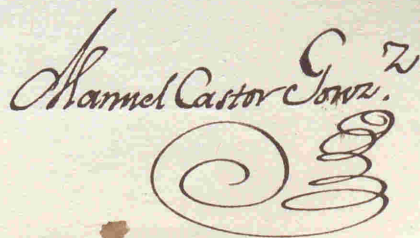 Manuel Castor Gonz.z